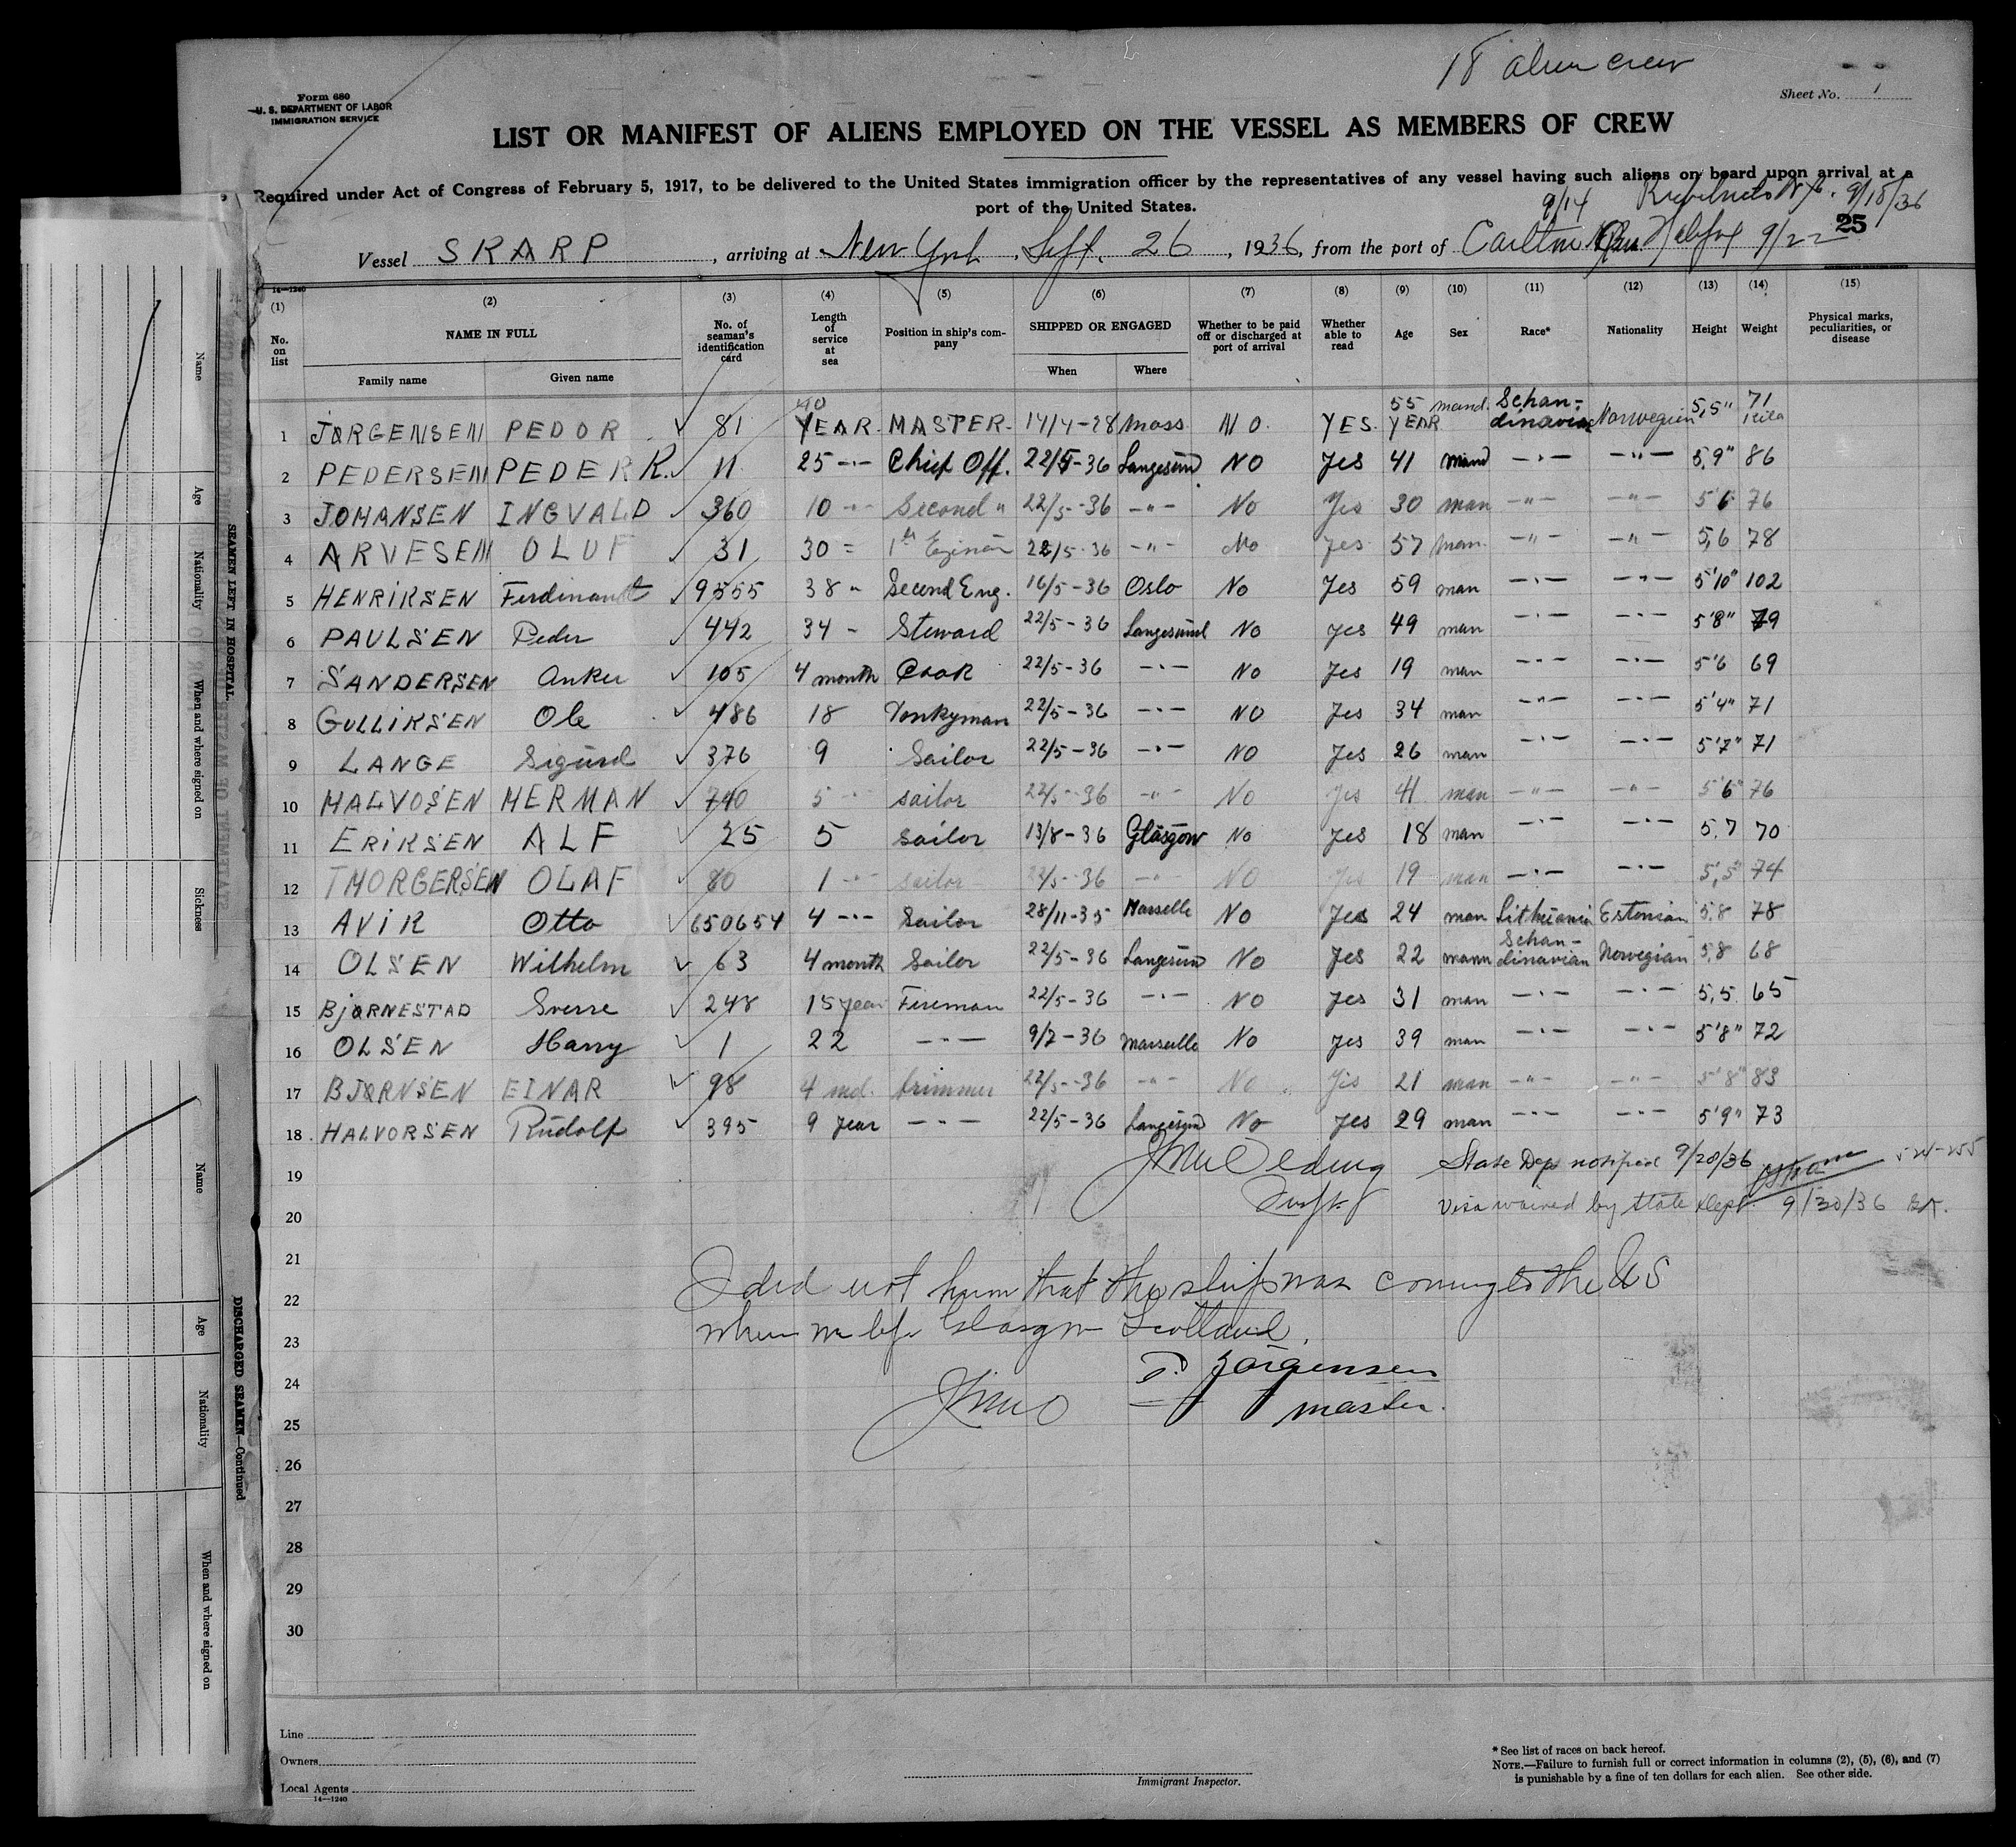 18 alien crew
Form 680
U. S. DEPARTMENT OF LABOR
IMMIGRATION SERVICE
Sheet No. 1
LIST OR MANIFEST OF ALIENS EMPLOYED ON THE VESSEL AS MEMBERS OF CREW
Required under Act of Congress of February 5, 1917, to be delivered to the United States immigration officer by the representatives of any vessel having such aliens on board upon arrival at a
port of the United States.
9/14 9/18/36
25
Vessel SKARP, arriving at New York, Sept. 26, 1936, from the port of Carlton Halifax 9/22
14—1240
(1) (2) (3) (4) (5) (6) (7) (8) (9) (10) (11) (12) (13) (14) (15)
No. on list NAME IN FULL No. of seaman's identification card Length of service at sea Position in ship's company SHIPPED OR ENGAGED Whether to be paid off or discharged at port of arrival Whether able to read Age Sex Race* Nationality Height Weight Physical marks, peculiarities, or disease
Family name Given name When Where
1 JØRGENSEN PEDOR ✓ 81 40 YEAR. MASTER 14/4-28 Moss NO. YES. 55 YEAR mand. Schandinavian Norwegian 5,5" 71 kilo
2 PEDERSEN PEDER K. ✓ 11 25 -"- Chief Off. 22/5-36 Langesund NO Yes 41 mand -"- -"- 5,9" 86
3 JOHANSEN INGVALD ✓ 360 10 -"- Second " 22/5-36 -"- No Yes 30 man -"- -"- 5'6 76
4 ARVESEN OLUF ✓ 31 30 = 1th Eginör 22/5-36 -"- No Yes 57 man. -"- -"- 5,6 78
5 HENRIKSEN Ferdinandt ✓ 9555 38 " Second Eng. 16/5-36 Oslo No Yes 59 man -"- -"- 5'10" 102
6 PAULSEN Peder ✓ 442 34 - Steward 22/5-36 Langesund No Yes 49 man -"- -"- 5'8" 79
7 SANDERSEN Anker ✓ 105 4 month Cook 22/5-36 -"- No Yes 19 man -"- -"- 5'6 69
8 GULLIKSEN Ole ✓ 486 18 Donkyman 22/5-36 -"- NO Yes 34 man -"- -"- 5'4" 71
9 LANGE Sigurd ✓ 376 9 Sailor 22/5-36 -"- NO Yes 26 man -"- -"- 5'7" 71
10 HALVOSEN HERMAN ✓ 740 5 -"- sailor 22/5-36 -"- No Yes 41 man -"- -"- 5'6" 76
11 ERIKSEN ALF ✓ 25 5 sailor 13/8-36 Glasgow No Yes 18 man -"- -"- 5,7 70
12 THORGERSEN OLAF ✓ 80 1 -"- sailor 22/5-36 -"- NO Yes 19 man -"- -"- 5,5" 74
13 AVIK Otto ✓ 650654 4 -"- Sailor 28/11-35 Marselle No Yes 24 man Lithuania Estonian 5,8 78
14 OLSEN Wilhelm ✓ 63 4 month Sailor 22/5-36 Langesun No Yes 22 mann Schandinavian Norwegian 5,8 68
15 BJØRNESTAD Sverre ✓ 248 15 year Fireman 22/5-36 -"- NO Yes 31 man -"- -"- 5,5 65
16 OLSEN Harry ✓ 1 22 -"- 9/7-36 Marseille No Yes 39 man -"- -"- 5'8" 72
17 BJØRNSEN EINAR ✓ 98 4 md. trimmer 22/5-36 -"- No Yes 21 man -"- -"- 5'8" 83
18. HALVORSEN Rudolf ✓ 395 9 Year -"- 22/5-36 Langesund No Yes 29 man -"- -"- 5'9" 73
19 State Dep notified 9/28/36
20 Visa waived by State Dept 9/30/36
21
I did not know that the ship was coming to the US
22
when we left Glasgow Scotland.
23
P. Jörgensen
24
master.
25
26
27
28
29
30
Line
Owners
Local Agents
14—1240
Immigrant Inspector.
* See list of races on back hereof.
NOTE.—Failure to furnish full or correct information in columns (2), (5), (6), and (7)
is punishable by a fine of ten dollars for each alien. See other side.
SEAMEN LEFT IN HOSPITAL
Name
Age
Nationality
When and where signed on
Sickness
DISCHARGED SEAMEN—Continued
Name
Age
Nationality
When and where signed on